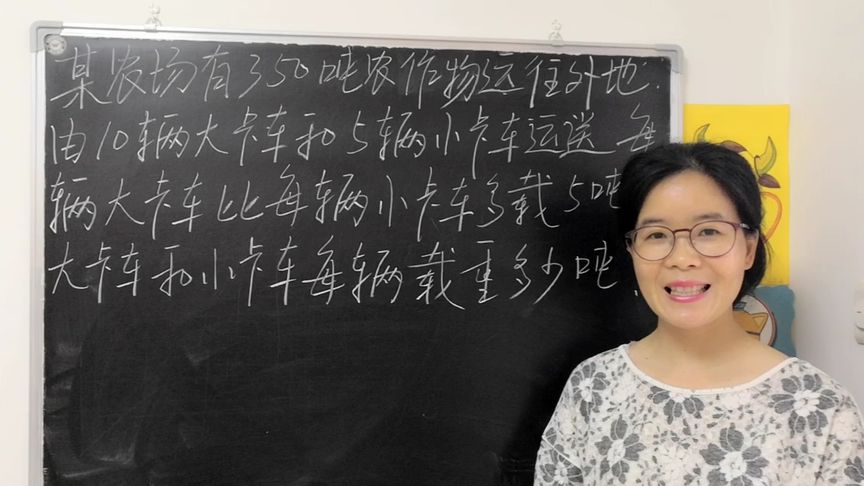 某农场有350吨农作物运往外地.
由10辆大卡车和5辆小卡车运送 每
辆大卡车比每辆小卡车多载5吨
大卡车和小卡车每辆载重多少吨.